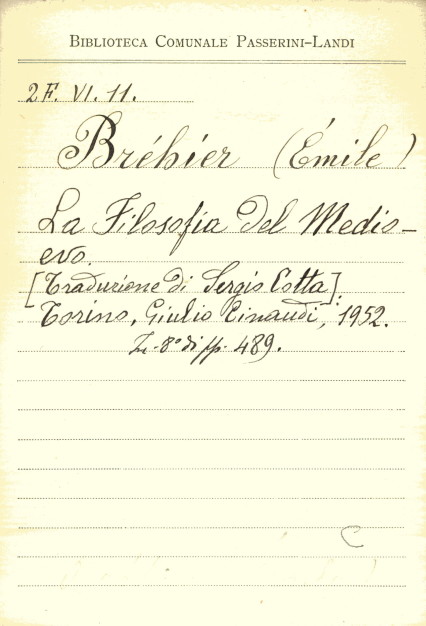 BIBLIOTECA COMUNALE PASSERINI-LANDI
2 F. VI. 11.
Bréhier (Émile)
La Filosofia del Medio-
evo.
[Traduzione di Sergio Cotta].
Torino, Giulio Einaudi, 1952.
In-8° di pp. 489.
C